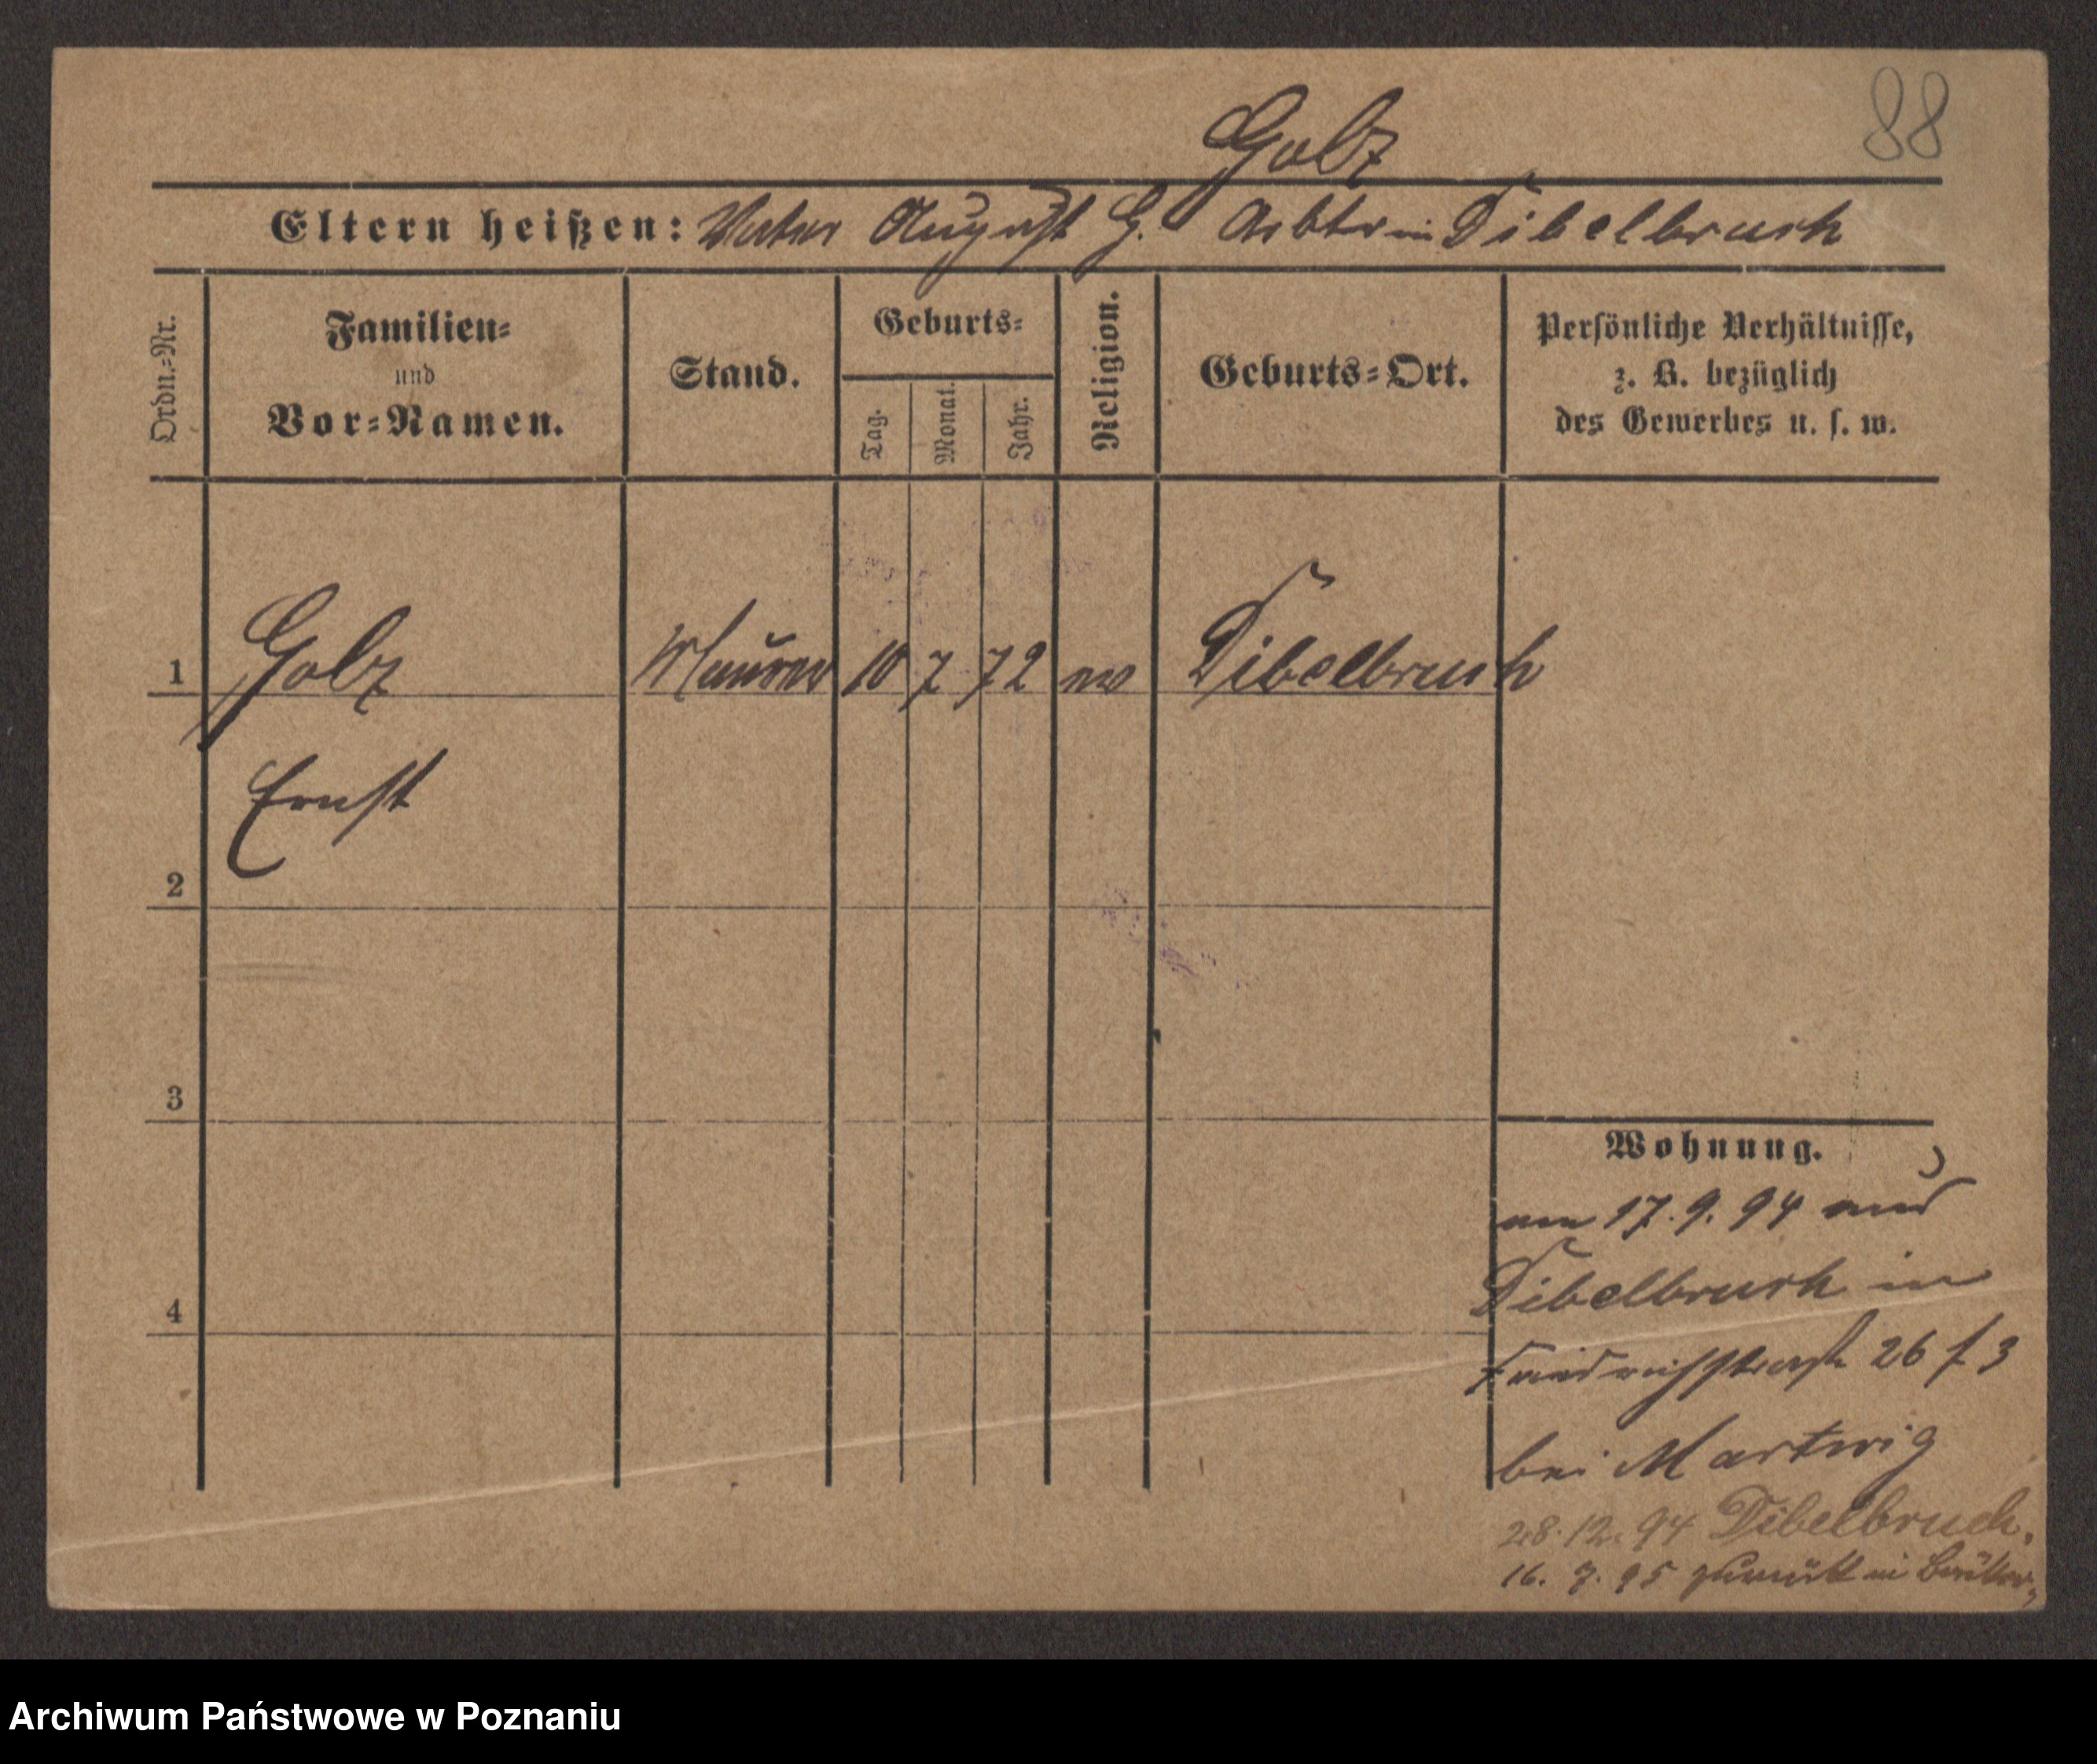 88
Golz
Eltern heißen: Vater August G. Arbtr in Dibelbruch
Ordn.-Nr.
Familien-
und
Vor-Namen.
Stand.
Geburts-
Tag.
Monat.
Jahr.
Religion.
Geburts-Ort.
Persönliche Verhältnisse,
z. B. bezüglich
des Gewerbes u. s. w.
1 Golz Maurer 10 7 72 ev Dibelbruch
Ernst
2
3
4
Wohnung.
am 17. 9. 94 aus
Dibelbruch in
Friedrichstraße 26 f 3
bei Martwig
28. 12. 94 Dibelbruch.
16. 7. 95 zurück in
Archiwum Państwowe w Poznaniu